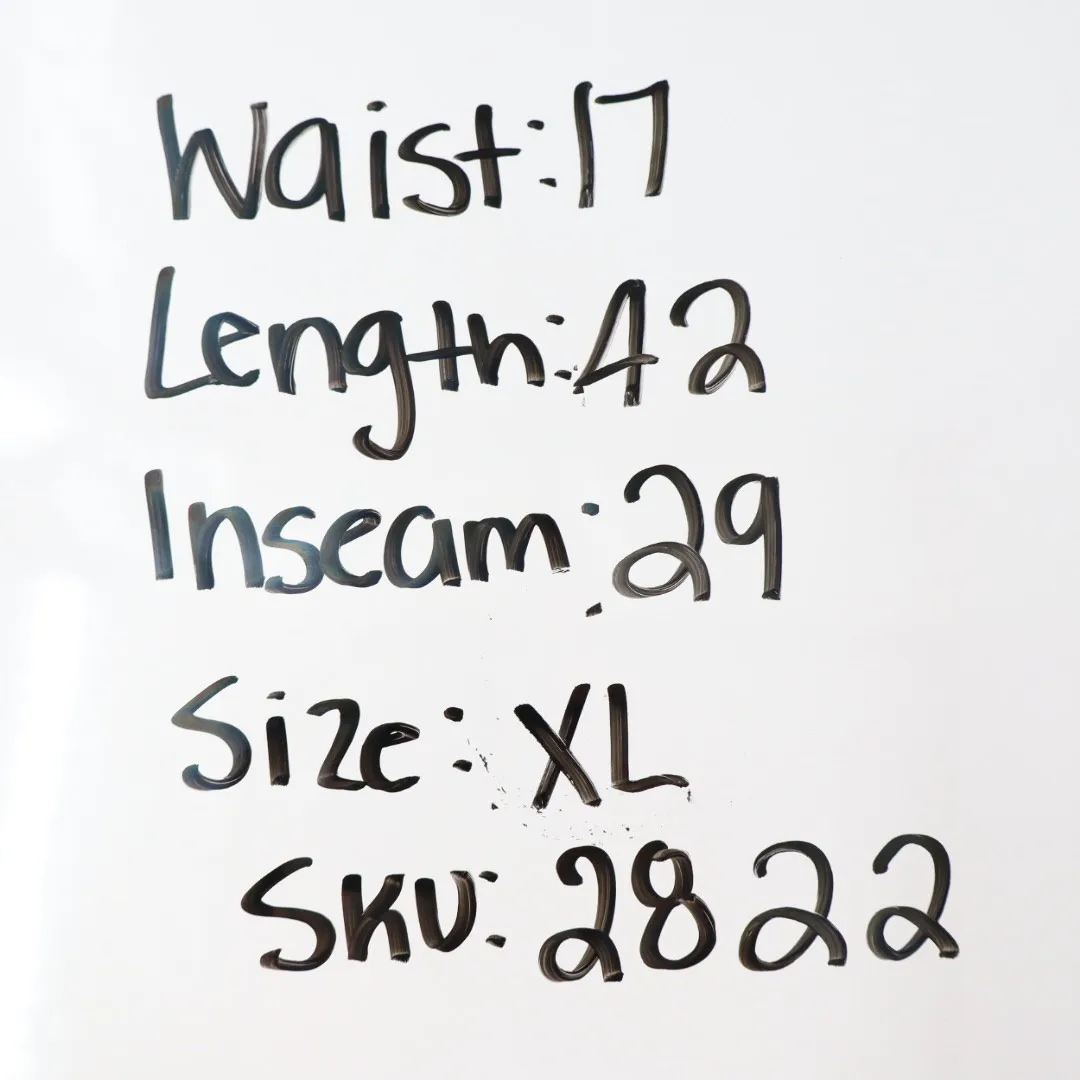 Waist:17
Length:42
Inseam:29
Size:XL
SKU:2822